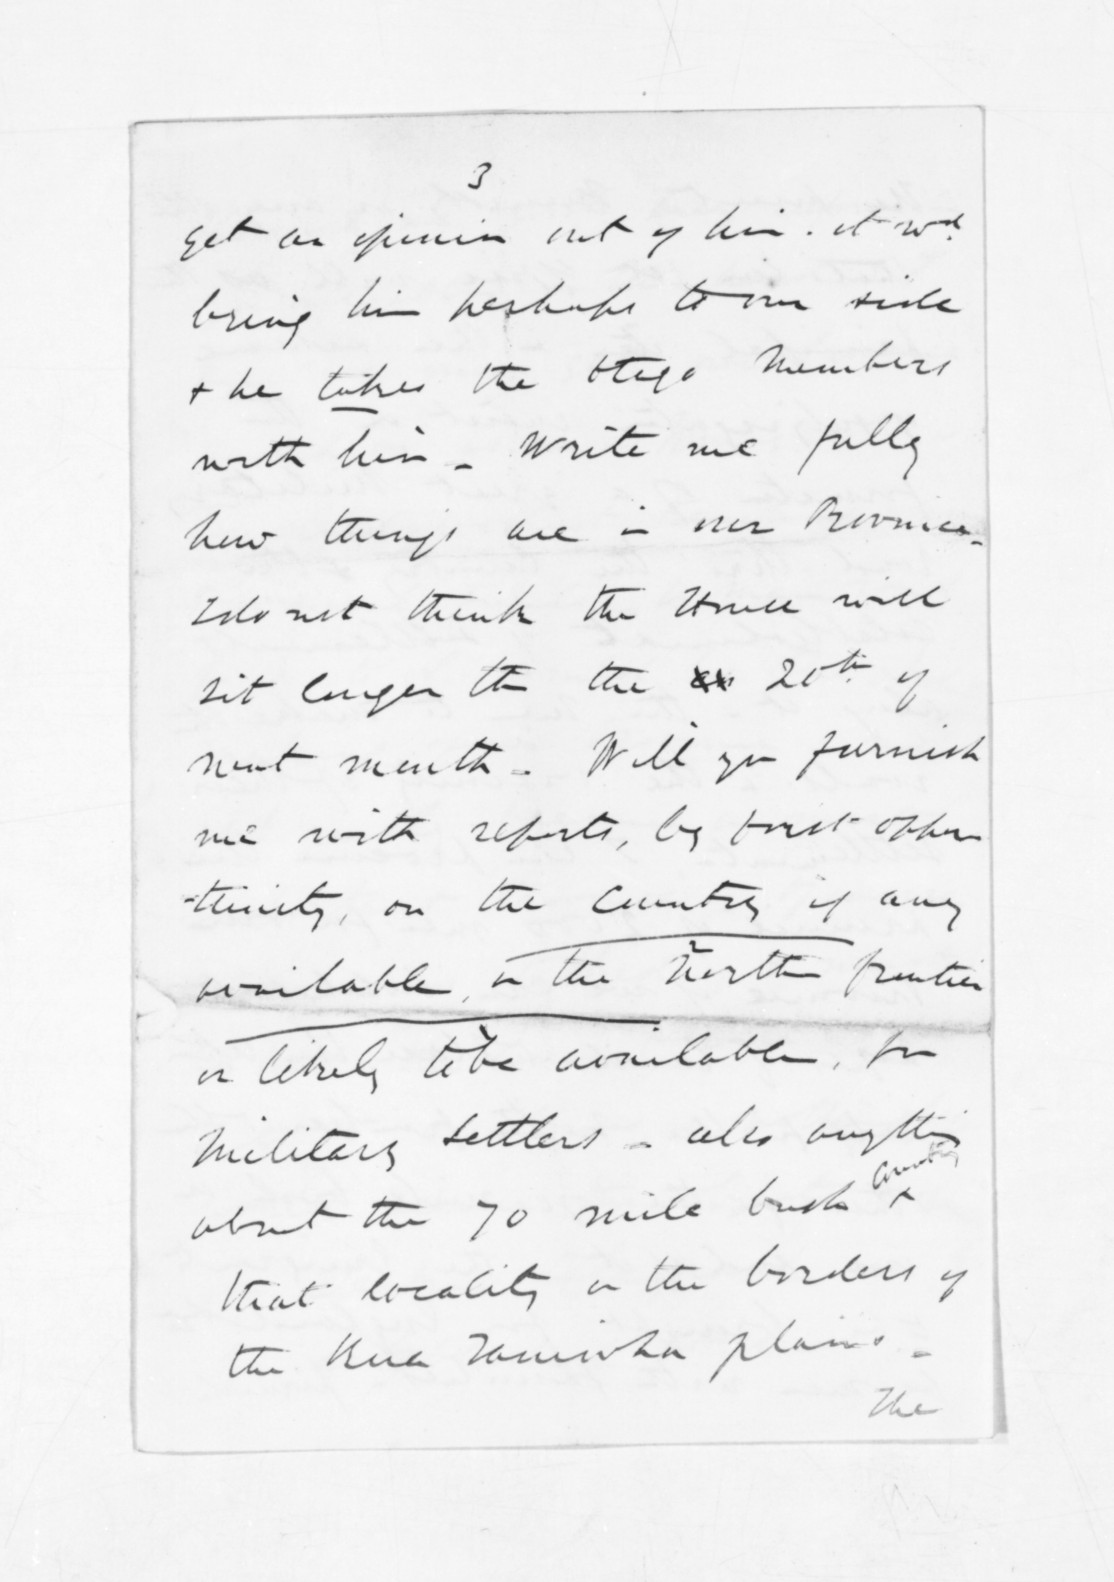 3
get an opinion out of him. it wd.
bring him perhaps to our side
+ he takes the Otago Members
with him - Write me fully
how things are in our Province -
I do not think the House will
sit longer th the 20th of
next month - Will you furnish
me with reports, by first oppor
-tunity, on the Country if any
available, on the North frontier
or likely to be available, for
Military Settlers - also anything
about the 70 mile bush Country +
that locality on the borders of
the Rua Taniwha plains -
The